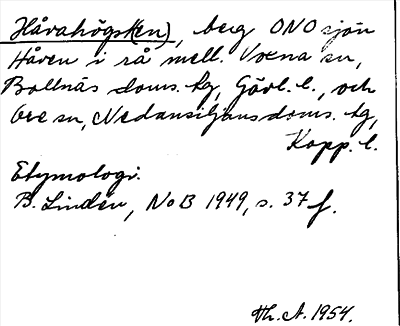 Håvahögst(en), berg ONO sjön
Håven i rå mell. Voxna sn,
Bollnäs doms. hg, Gävl. l., och
Ore sn, Nedansiljans doms. hg,
Kopp. l.
Etymologi.
B. Lindén, NoB 1949, s. 37 f.
Th. A. 1954.